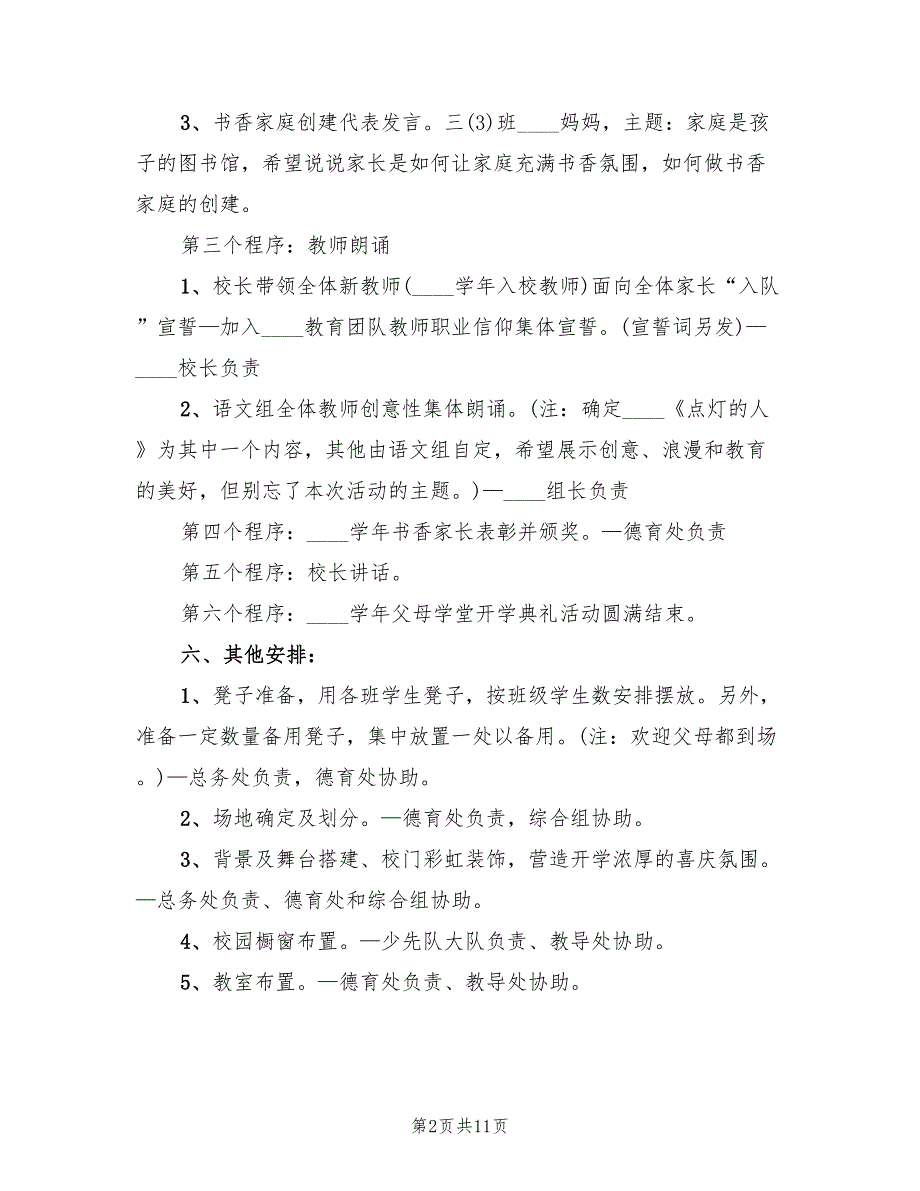 3、书香家庭创建代表发言。三(3)班____妈妈，主题：家庭是孩
子的图书馆，希望说说家长是如何让家庭充满书香氛围，如何做书香
家庭的创建。
第三个程序：教师朗诵
1、校长带领全体新教师(____学年入校教师)面向全体家长“入队
”宣誓—加入____教育团队教师职业信仰集体宣誓。(宣誓词另发)—
____校长负责
2、语文组全体教师创意性集体朗诵。(注：确定____《点灯的人
》为其中一个内容，其他由语文组自定，希望展示创意、浪漫和教育
的美好，但别忘了本次活动的主题。)—____组长负责
第四个程序：____学年书香家长表彰并颁奖。—德育处负责
第五个程序：校长讲话。
第六个程序：____学年父母学堂开学典礼活动圆满结束。
六、其他安排：
1、凳子准备，用各班学生凳子，按班级学生数安排摆放。另外，
准备一定数量备用凳子，集中放置一处以备用。(注：欢迎父母都到场
。)—总务处负责，德育处协助。
2、场地确定及划分。—德育处负责，综合组协助。
3、背景及舞台搭建、校门彩虹装饰，营造开学浓厚的喜庆氛围。
—总务处负责、德育处和综合组协助。
4、校园橱窗布置。—少先队大队负责、教导处协助。
5、教室布置。—德育处负责、教导处协助。
第2页共11页